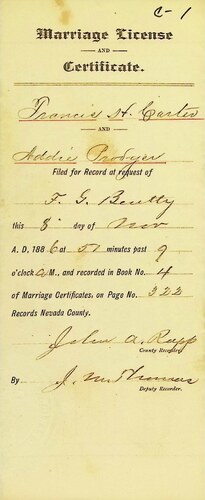 C-1
Marriage License
AND
Certificate.
Francis H. Carter
AND
Addie
Filed for Record at request of
F. G. Beatty
this 8 day of Nov
A. D. 1886 at 51 minutes past 9
o'clock a M., and recorded in Book No. 4
of Marriage Certificates, on Page No. 322
Records Nevada County.
John A. Rapp
County Recorder.
By J. M. Thomas
Deputy Recorder.